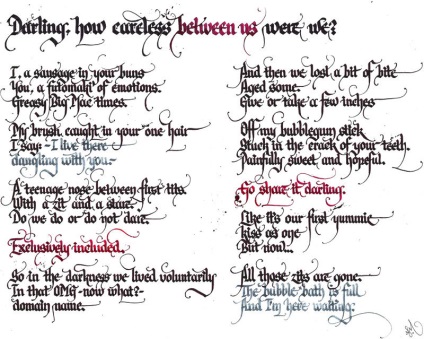 Darling, how careless between us were we?
I, a sausage in your buns
You, a futomaki of emotions.
Greasy Big Mac times.
My brush, caught in your one hair
I say: -I live there
dangling with you.-
A teenage nose between first tits.
With a zit and a stare.
Do we do or do not dare.
Exclusively included.
So in the darkness we lived voluntarily
In that OMG-now what?-
domain name.
And then we lost a bit of bite
Aged some.
Give or take a few inches
Off my bubblegum stick
Stuck in the crack of your teeth.
Painfully sweet and hopeful.
Go share it darling.
Like it's our first yummie
kiss as one
But
All those zits are gone.
The bubble bath is full
And I'm here waiting.